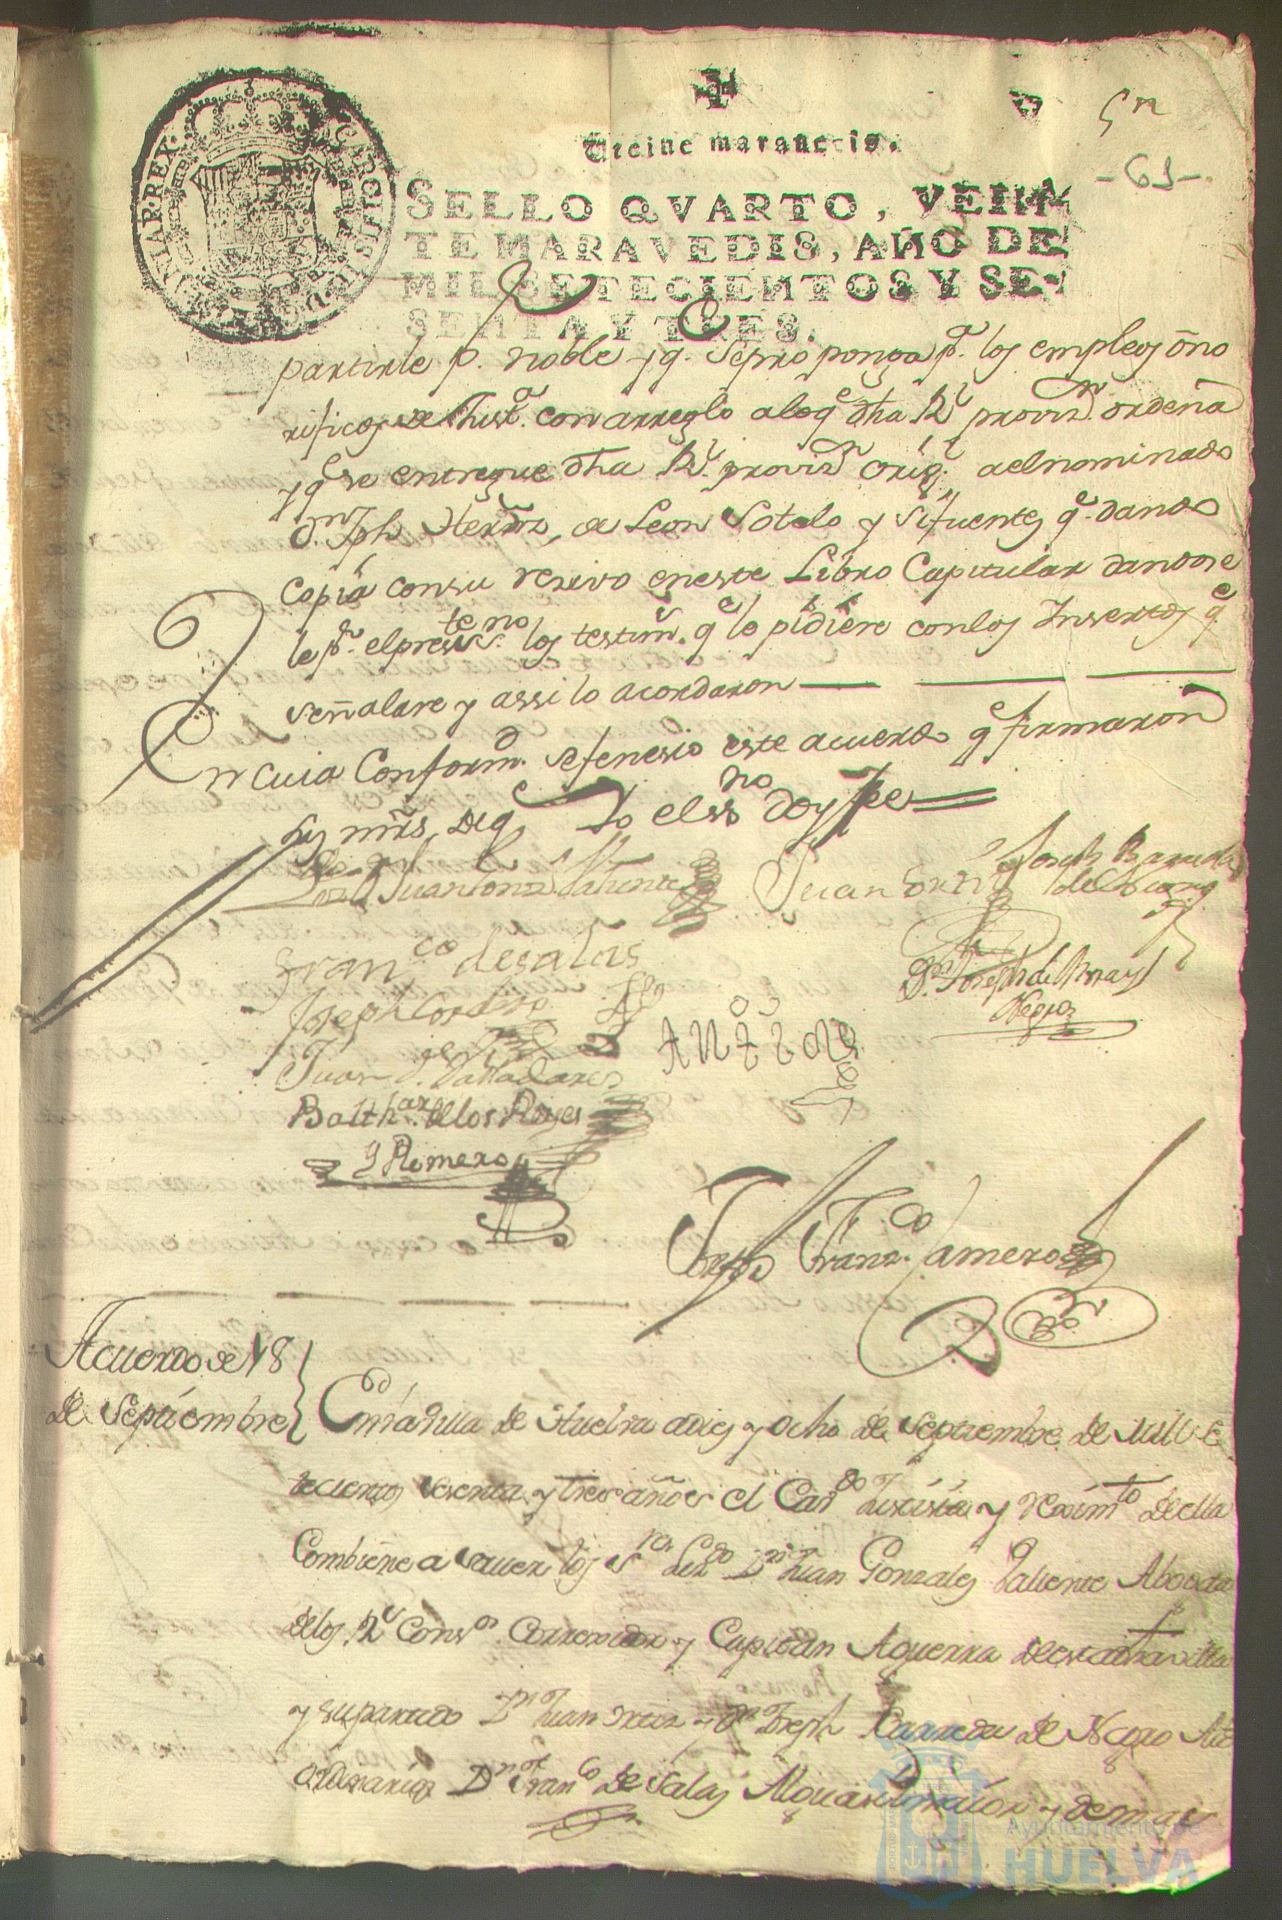 5n
-61-
Veinte maravedis.
SELLO QVARTO, VEIN-
TE MARAVEDIS, AÑO DE
MIL SETECIENTOS Y SE-
SENTA Y TRES.
CAROLUS III D G HISPANIAR REX
partirle p. noble y q. se proponga pa. los empleos ono
rificos de Justa. con arreglo a lo qe dha Rl provizn ordena
y qe se entregue dha Rl. provizn orig.l a el nominado
Dn. Jph Hernz, de Leon Sotelo y Sifuentes qe. dando
copia con su resivo en este Libro Capitular dandose
le pr. el preste. ssno. los testims. qe lo pidiere con los Insertos qe
señalare y assi lo acordaron
En cuia Conformd. se fenesio este acuerdo qe firmaron
sus mrds de q Yo el ssno doy fee
Lizdo Dn Juan Gonz Valiente
Juan Ortiz
Joseph Barreda
de
Franco de Salas
Joseph Cordero
Dn. Joseph de
Negro
Juan
Valladares
Balthar. de los Reyes
y Romero
Antt mi
Joseph Franzco. Jamero
SSno
Acuerdo de 18
de Septiembre
En la villa de Huelva a dies y ocho de Septiembre de mill se
tecientos sesenta y tres años el Cavdo Justisia y reximto de ella
Combiene a saver los Sres Lizdo Dn Juan Gonzales Valiente Abogdo
de los Rs Consos Correxidor y Capitan Aguerra de esta dha villa
y su partido Dn Juan Ortiz y Dn Joseph Barreda de Negro Alc
ordinarios Dn Franco de Salas Alguasil maior y demas
Ayuntamiento de
HUELVA